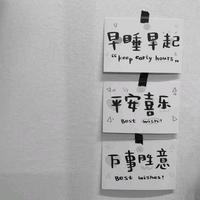 早睡早起
"keep early hours"
平安喜乐
Best wish!
万事胜意
Best wishes!